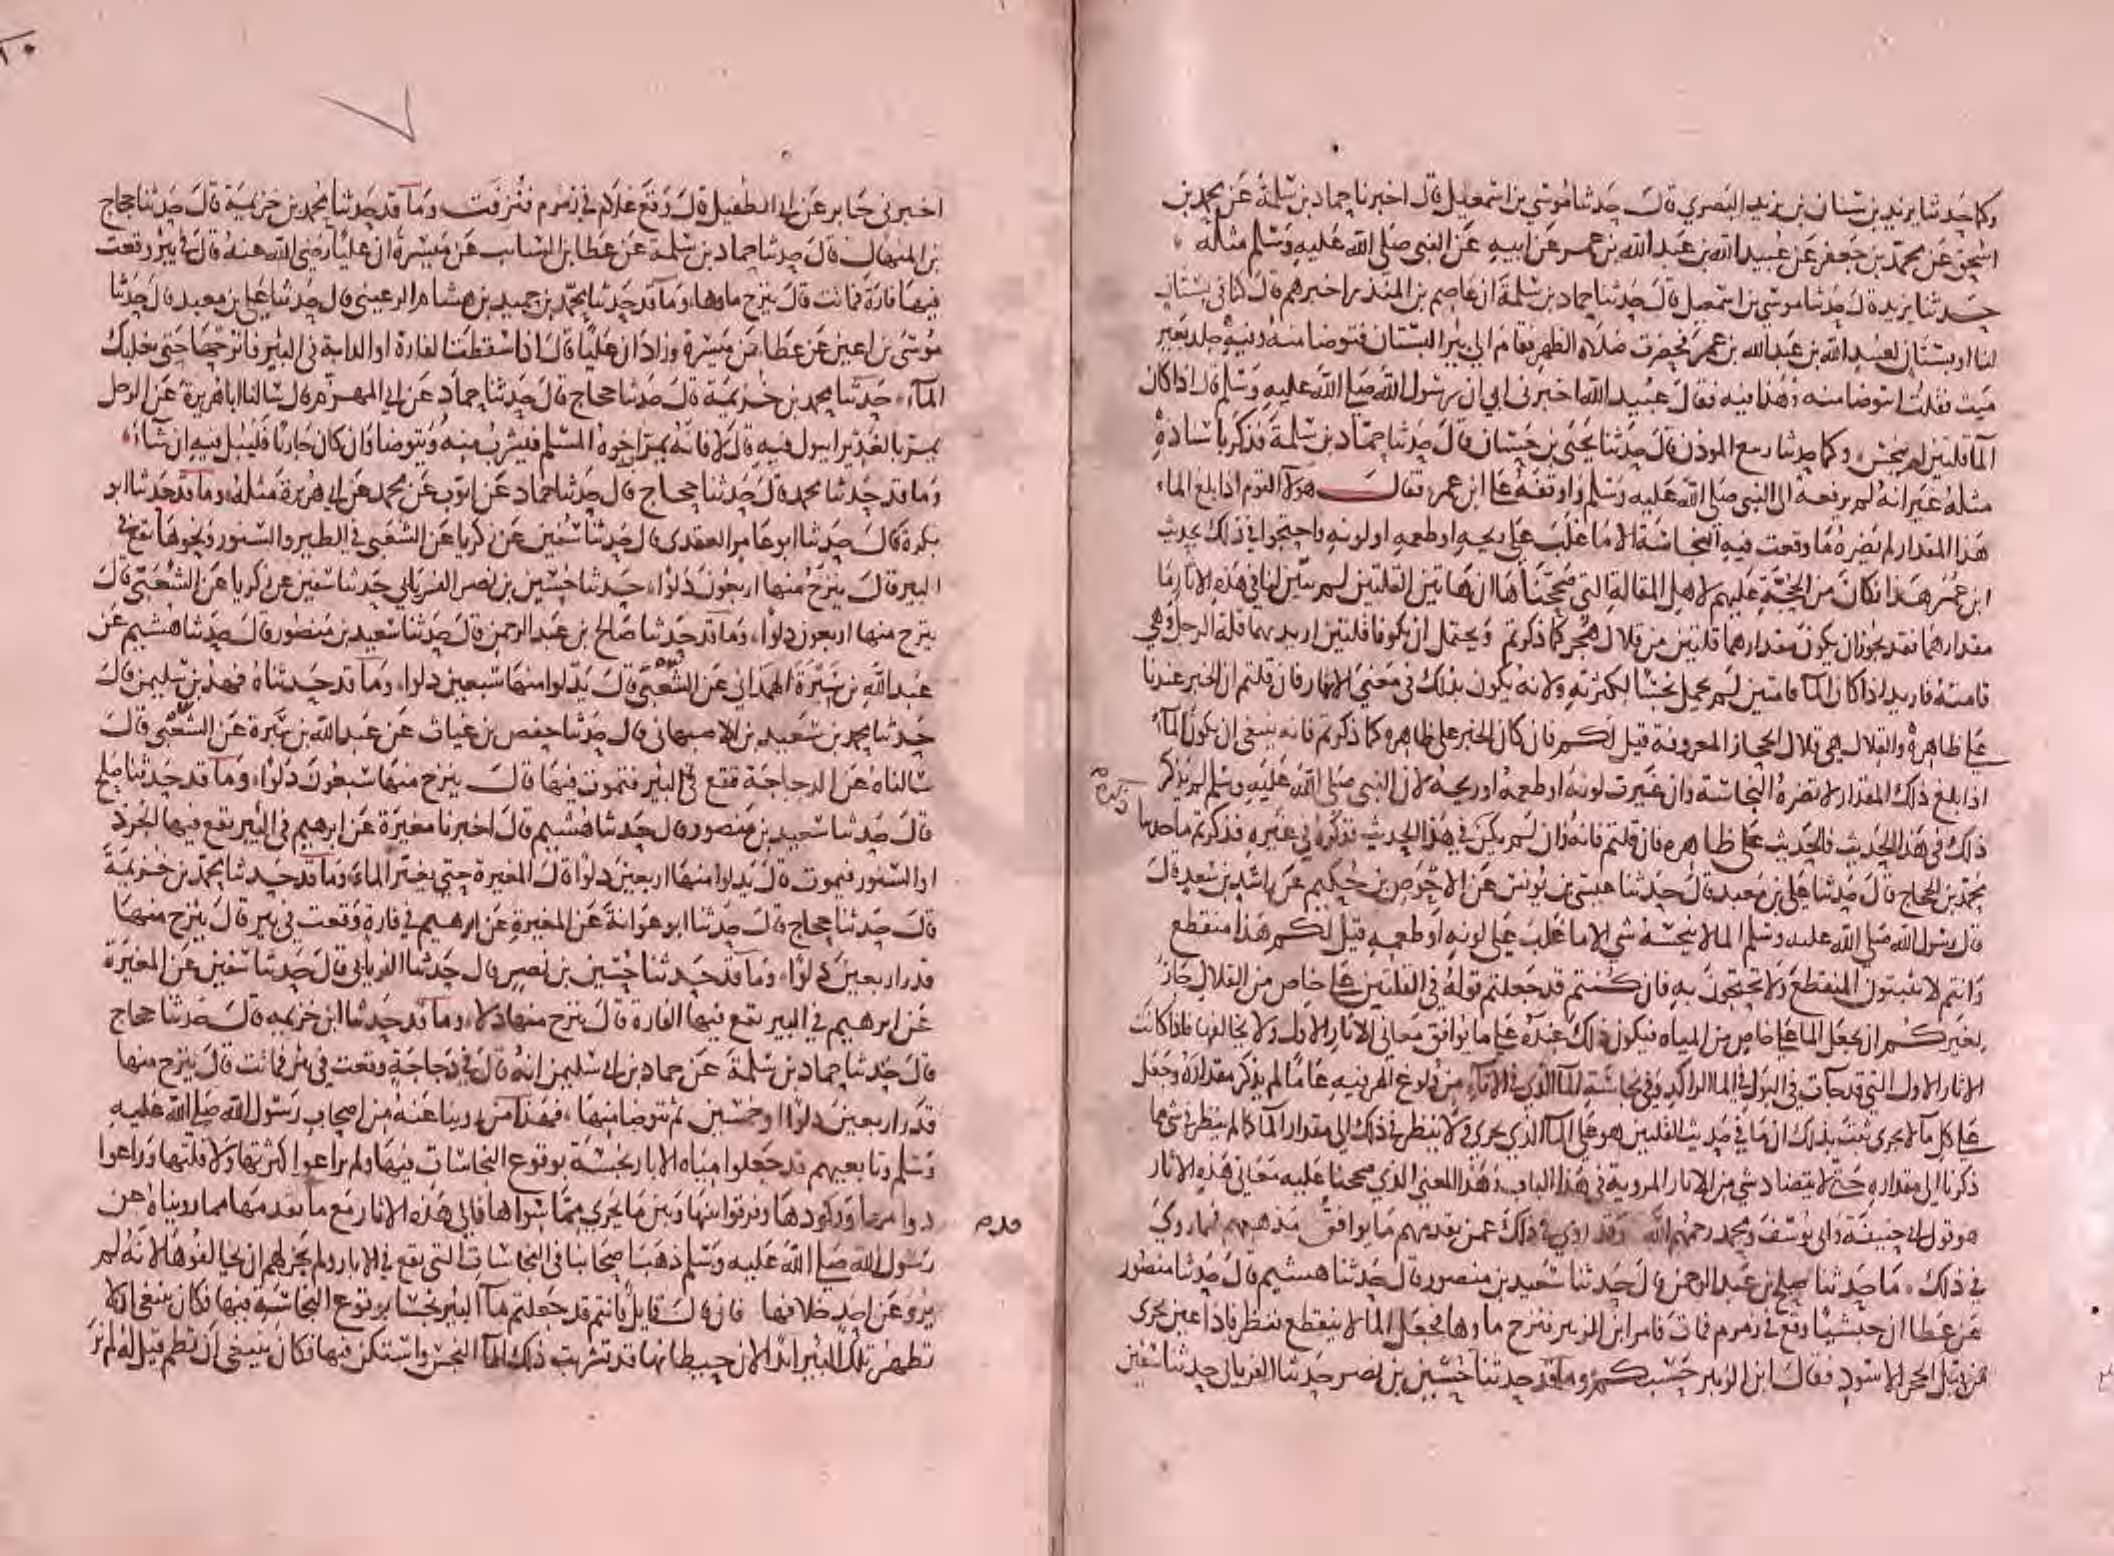 وكما حدثنا يزيد بن سنان بن يزيد البصري قال حدثنا موسى بن اسمعيل قال اخبرنا حماد بن سلمة عن محمد بن
اسحق عن محمد بن جعفر عن عبيد الله بن عبد الله بن عمر عن ابيه عن النبي صلى الله عليه وسلم مثله
حدثنا يزيد قال حدثنا موسى بن اسمعيل قال حدثنا حماد بن سلمة ان عاصم بن المنذر اخبرهم قال كنا في بستان
لنا او بستان لعبيد الله بن عبد الله بن عمر فحضرت صلاة الظهر فقام الى بير البستان فتوضا منه وفيه جلد بعير
ميت فقلت اتتوضا منه وهذا فيه فقال عبيد الله اخبرني ابي ان رسول الله صلى الله عليه وسلم قال اذا كان
الما قلتين لم ينجس وكما حدثنا ربيع الموذن قال حدثنا يحيى بن حسان قال حدثنا حماد بن سلمة فذكر باسناده
مثله غير انه لم يرفعه الى النبي صلى الله عليه وسلم واوقفه على ابن عمر فقال هولا القوم اذا بلغ الماء
هذا المقدار لم يضره ما وقعت فيه النجاسة الا ما غلب على ريحه او طعمه او لونه واحتجوا في ذلك بحديث
ابن عمر هذا فكان من الحجة عليهم لاهل المقالة التي صححناها ان هاتين القلتين لم يبين لنا في هذه الاثار ما
مقدارهما فقد يجوز ان يكون مقدارهما قلتين من قلال هجر كما ذكرتم ويحتمل ان يكونا قلتين اريد بهما قلة الرجل وهي
قامته فاريد اذا كان الما قامتين لم يحمل نجسا لكثرته ولانه يكون بذلك في معنى الانهار فان قلتم ان الخبر عندنا
على ظاهره والقلال هي قلال الحجاز المعروفة قيل لكم فان كان الخبر على ظاهره كما ذكرتم فانه ينبغي ان يكون الماء
اذا بلغ ذلك المقدار لا تضره النجاسة وان غيرت لونه او طعمه او ريحه لان النبي صلى الله عليه وسلم لم يذكر
ذلك في هذا الحديث فالحديث على ظاهره فان قلتم فانه وان لم يكن في هذا الحديث فذكره في غيره فذكرتم ما حدثنا
محمد بن الحجاج قال حدثنا علي بن معبد قال حدثنا عيسى بن يونس عن الاحوص بن حكيم عن راشد بن سعد قال
قال رسول الله صلى الله عليه وسلم الما لا ينجسه شي الا ما غلب على لونه او طعمه قيل لكم هذا منقطع
وانتم لا تثبتون المنقطع ولا تحتجون به فان كنتم قد جعلتم قوله في القلتين على خاص من القلال جاز
لغيركم ان يجعل الما على خاص من المياه فيكون ذلك عنده على ما يوافق معاني الاثار الاول ولا يخالفها فاذا كانت
الاثار الاول التي قد جات في البول في الما الراكد وفي نجاسة الما الذي في الاناء من ولوغ الهر فيه عاما لم يذكر مقداره وجعل
على كل ما لا يجري ثبت بذلك ان ما في حديث القلتين هو على الما الذي يجري ولا ينظر في ذلك الى مقدار الما كما لم ينظر في شي مما
ذكرنا الى مقداره حتى لا يتضاد شي من الاثار المروية في هذا الباب وهذا المعنى الذي صححنا عليه معاني هذه الاثار
هو قول ابي حنيفة وابي يوسف ومحمد رحمهم الله وقد روي في ذلك عمن تقدمهم ما يوافق مذهبهم فما روي
في ذلك ما حدثنا صلح بن عبد الرحمن قال حدثنا سعيد بن منصور قال حدثنا هشيم قال حدثنا منصور
عن عطا ان حبشيا وقع في زمزم فمات فامر ابن الزبير فنزح ماوها فجعل الما لا ينقطع فنظر فاذا عين تجري
من قبل الحجر الاسود فقال ابن الزبير حسبكم وما قد حدثنا حسين بن نصر حدثنا الفريابي حدثنا سفين
اخبرني جابر عن ابي الطفيل قال وقع غلام في زمزم فنزفت وما قد حدثنا محمد بن خزيمة قال حدثنا حجاج
بن المنهال قال حدثنا حماد بن سلمة عن عطا بن السايب عن ميسرة ان عليا رضي الله عنه قال في بير وقعت
فيها فارة فماتت قال ينزح ماوها وما قد حدثنا محمد بن حميد بن هشام الرعيني قال حدثنا علي بن معبد قال حدثنا
موسى بن اعين عن عطا عن ميسرة وزاذان عن عليا قال اذا سقطت الفارة او الدابة في البير فانزحها حتى يغلبك
الماء حدثنا محمد بن خزيمة قال حدثنا حجاج قال حدثنا حماد عن ابي المهزم قال سالنا ابا هريرة عن الرجل
يمر بالغدير ايبول فيه قال لا فانه يمر اخوه المسلم فيشرب منه ويتوضا وان كان جاريا فليبل فيه ان شاء
وما قد حدثنا محمد قال حدثنا حجاج قال حدثنا حماد عن ايوب عن محمد عن ابي هريرة مثله وما قد حدثنا ابو
بكرة قال حدثنا ابو عامر العقدي قال حدثنا سفين عن زكريا عن الشعبي في الطير والسنور ونحوهما يقع في
البير قال ينزح منها اربعون دلوا حدثنا حسين بن نصر الفريابي حدثنا سفين عن زكريا عن الشعبي قال
ينزح منها اربعون دلوا وما قد حدثنا صالح بن عبد الرحمن قال حدثنا سعيد بن منصور قال حدثنا هشيم عن
عبد الله بن سبرة الهمداني عن الشعبي قال يدلوا منها سبعين دلوا وما قد حدثناه فهد بن سليمن قال
حدثنا محمد بن سعيد بن الاصبهاني قال حدثنا حفص بن غياث عن عبد الله بن سبرة عن الشعبي قال
سالناه عن الدجاجة تقع في البير فتموت فيها قال ينزح منها سبعون دلوا وما قد حدثنا صلح
قال حدثنا سعيد بن منصور قال حدثنا هشيم قال اخبرنا مغيرة عن ابرهيم في البير تقع فيها الجرذ
او السنور فيموت قال يدلوا منها اربعين دلوا قال المغيرة حتى يغير الماء وما قد حدثنا محمد بن خزيمة
قال حدثنا حجاج قال حدثنا ابو عوانة عن المغيرة عن ابرهيم في فارة وقعت في بير قال ينزح منها
قدر اربعين دلوا وما قد حدثنا حسين بن نصر قال حدثنا الفريابي قال حدثنا سفين عن المغيرة
عن ابرهيم في البير تقع فيها الفارة قال ينزح منها دلاء وما قد حدثنا ابن خزيمة قال حدثنا حجاج
قال حدثنا حماد بن سلمة عن حماد بن ابي سليمن انه قال في دجاجة وقعت في بير فماتت قال ينزح منها
قدر اربعين دلوا او خمسين ثم يتوضا منها فهذا من روينا عنه من اصحاب رسول الله صلى الله عليه
وسلم وتابعيهم قد جعلوا مياه الابار نجسة بوقوع النجاسات فيها ولم يراعوا كثرتها ولا قلتها وراعوا
دوامها وركودها وفرقوا بينها وبين ما يجري مما سواها فالى هذه الاثار مع ما تقدمها مما رويناه عن
قدم
رسول الله صلى الله عليه وسلم ذهب اصحابنا في النجاسات التي تقع في الابار ولم يجز لهم ان يخالفوها لانه لم
يرو عن احد خلافها فان قال قايل فانتم قد جعلتم ما البير نجسا بوقوع النجاسة فيها فكان ينبغي ان لا
تطهر تلك البير ابدا لان حيطانها قد تشربت ذلك الما النجس واستكن فيها فكان ينبغي ان تطم قيل له لم نر